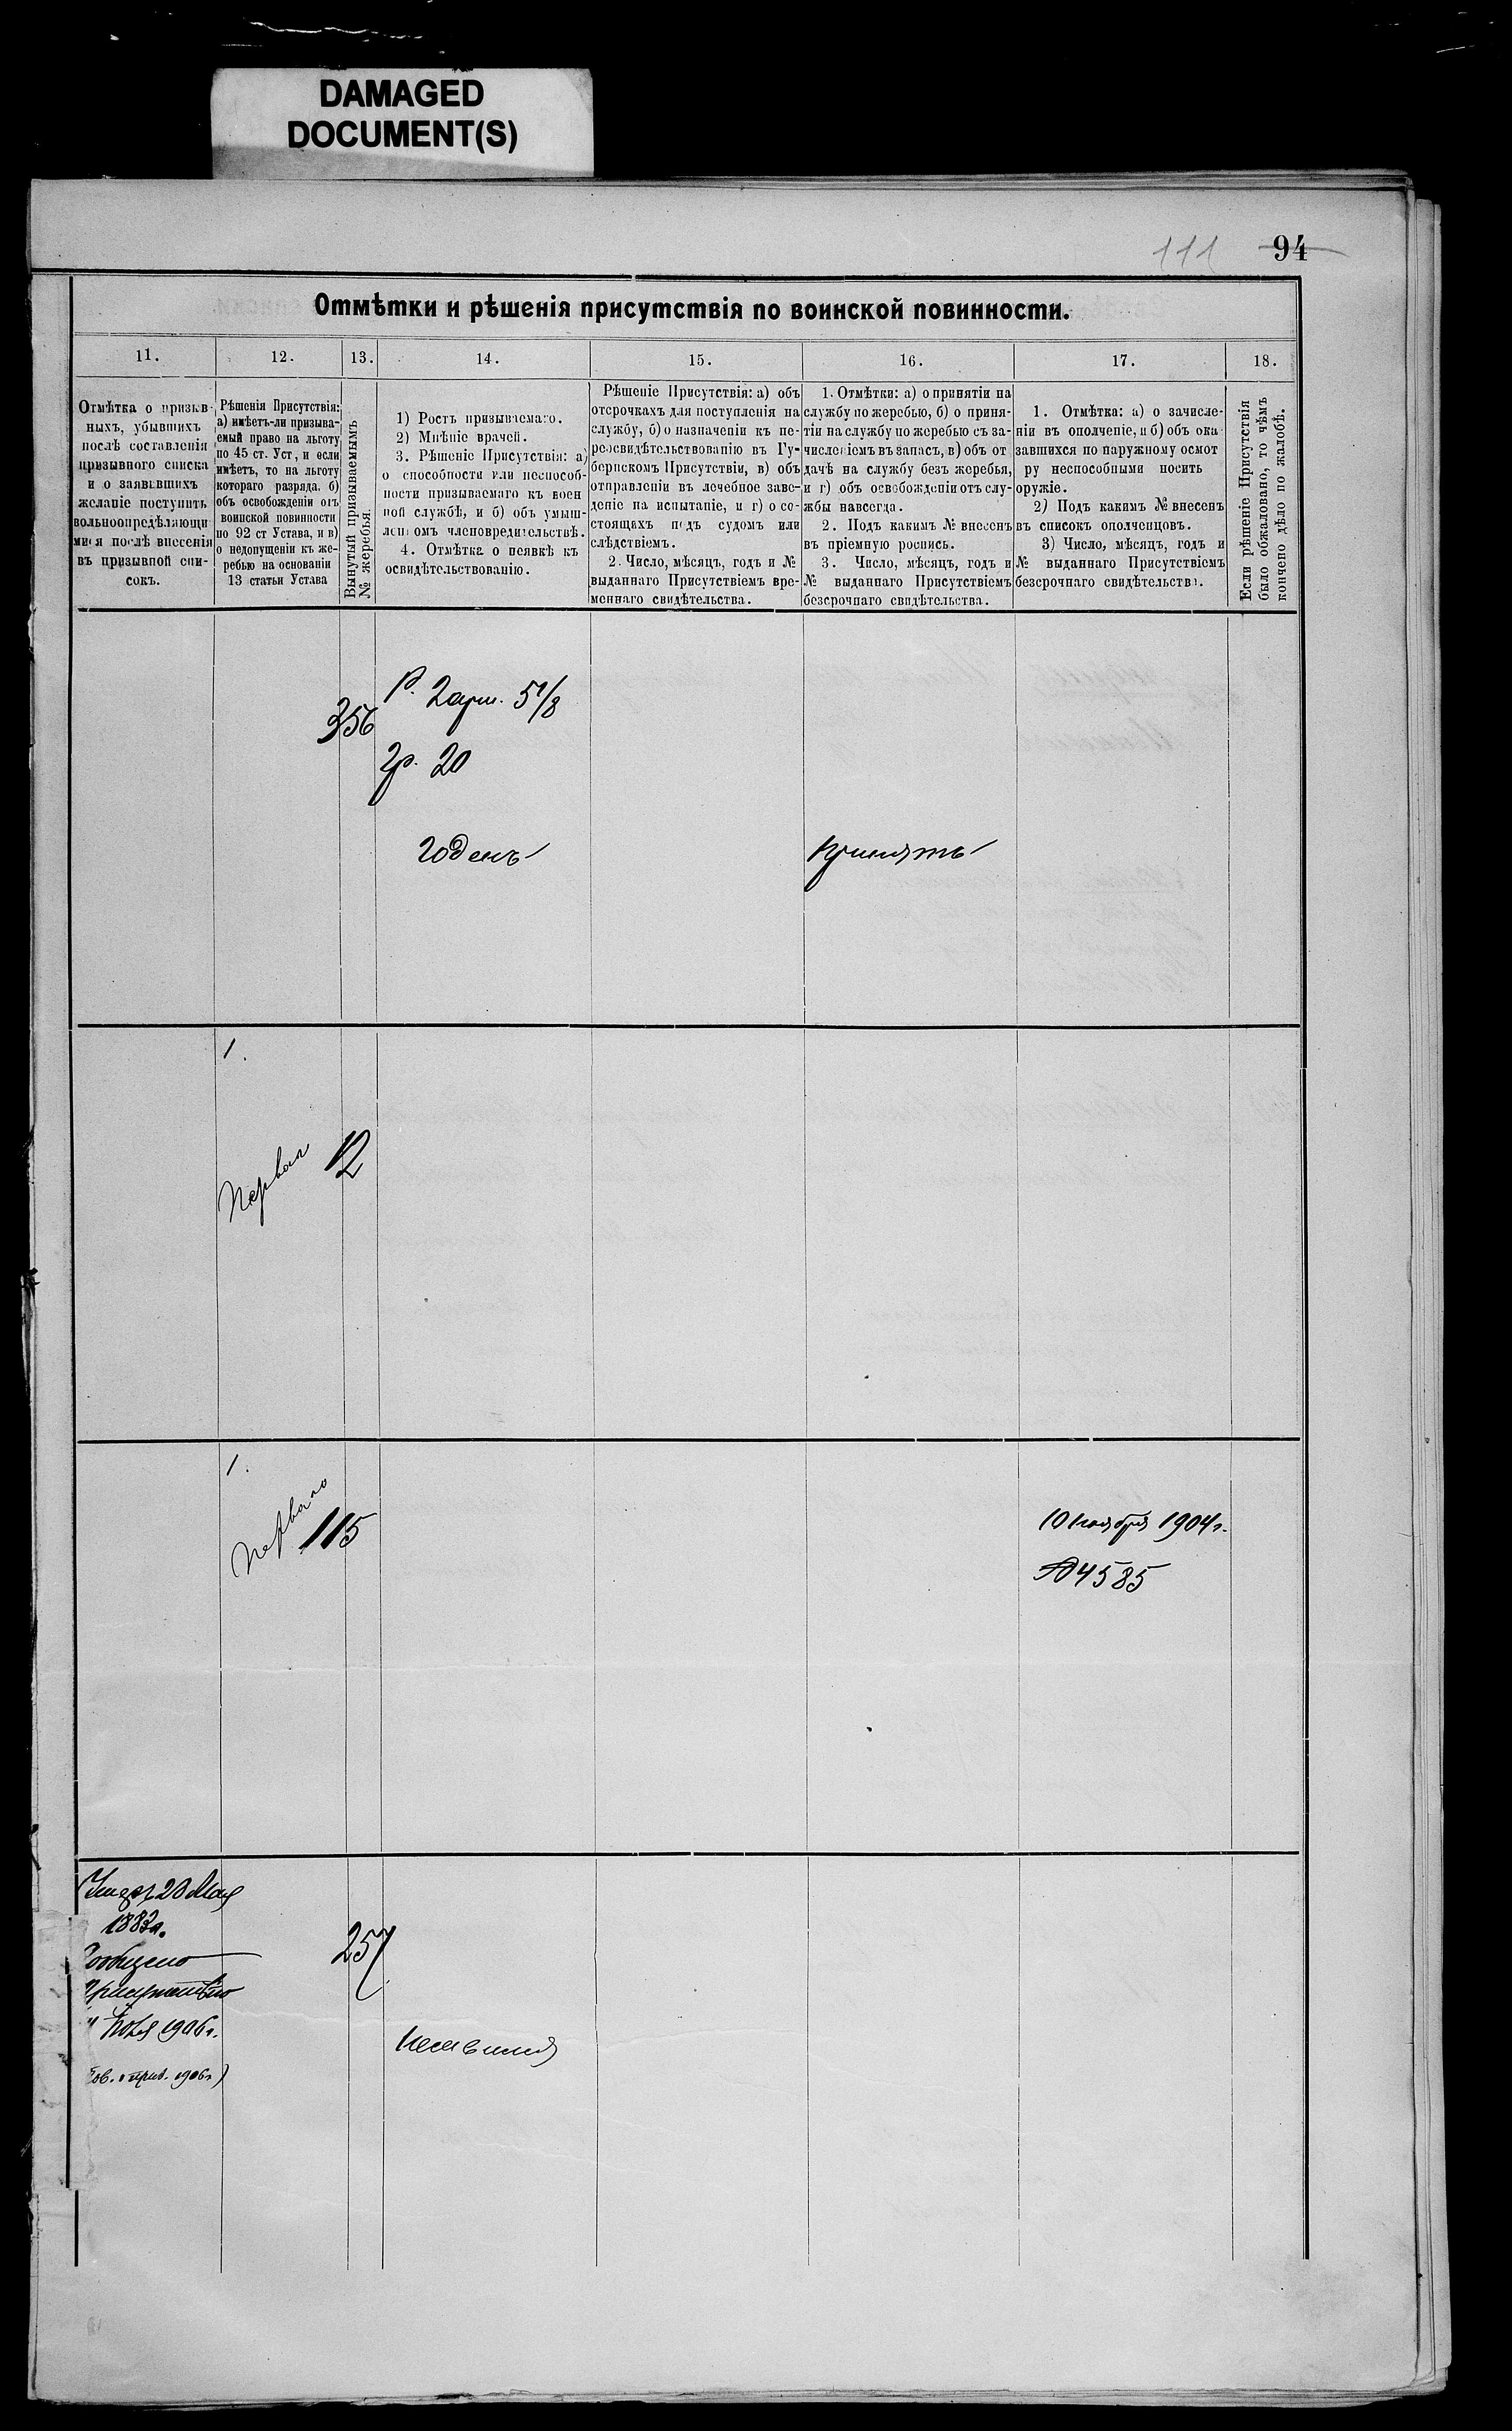 DAMAGED
DOCUMENT(S)
111 94
Отмѣтки и рѣшенія присутствія по воинской повинности.
11. 12. 13. 14. 15. 16. 17. 18.
Отмѣтка о призыв-
ныхъ, убывшихъ
послѣ составленія
призывного списка
и о заявившихъ
желаніе поступить
вольноопредѣляющи
мися послѣ внесенія
въ призывной спи-
сокъ.
Рѣшенія Присутствія:
а) имѣетъ-ли призыва-
емый право на льготу
по 45 ст. Уст, и если
имѣетъ, то на льготу
котораго разряда. б)
объ освобожденіи отъ
воинской повинности
по 92 ст Устава, и в)
о недопущеніи къ же-
ребью на основаніи
13 статьи Устава
Вынутый призываемымъ
№ жеребья.
1) Ростъ призываемаго.
2) Мнѣніе врачей.
3. Рѣшеніе Присутствія: а)
о способности или неспособ-
ности призываемаго къ воен
ной службѣ, и б) объ умыш-
леномъ членовредительствѣ.
4. Отмѣтка о неявкѣ къ
освидѣтельствованію.
Рѣшеніе Присутствія: а) объ
отсрочкахъ для поступленія на
службу, б) о назначеніи къ пе-
реосвидѣтельствованію въ Гу-
бернскомъ Присутствіи, в) объ
отправленіи въ лечебное заве-
деніе на испытаніе, и г) о со-
стоящахъ подъ судомъ или
слѣдствіемъ.
2. Число, мѣсяцъ, годъ и №
выданнаго Присутствіемъ вре-
меннаго свидѣтельства.
1. Отмѣтки: а) о принятіи на
службу по жеребью, б) о приня-
тіи на службу по жеребью съ за-
численіемъ въ запасъ, в) объ от
дачѣ на службу безъ жеребья,
и г) объ освобожденіи отъ слу-
жбы навсегда.
2. Подъ какимъ № внесенъ
въ пріемную роспись.
3. Число, мѣсяцъ, годъ и
№ выданнаго Присутствіемъ
безсрочнаго свидѣтельства.
1. Отмѣтка: а) о зачисле-
ніи въ ополченіе, и б) объ ока
завшихся по наружному осмот
ру неспособными носить
оружіе.
2) Подъ какимъ № внесенъ
въ списокъ ополченцовъ.
3) Число, мѣсяцъ, годъ и
№ выданнаго Присутствіемъ
безсрочнаго свидѣтельства.
Если рѣшеніе Присутствія
было обжаловано, то чѣмъ
кончено дѣло по жалобѣ.
356
Р. 2 арш. 5 1/8
Гр. 20
годенъ
принятъ
1.
Первая
12
1.
115
10 ноября 1904 г.
№ 4585
Умеръ 20 Мая
Сообщено
257
неявился